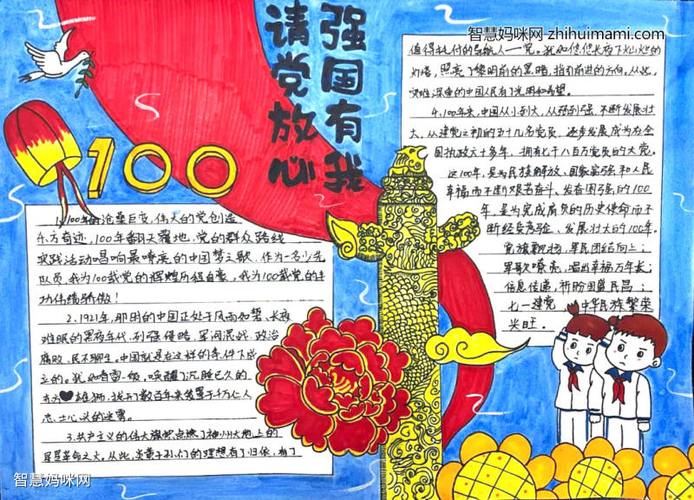 智慧妈咪网 zhihuimami.com
请党放心
强国有我
100
1、100年的沧桑巨变,伟大的党创造
千方奇迹,100年翻天覆地,党的群众路线
实践活动唱响最嘹亮的中国梦之歌,作为一名少先
队员,我为100岁党的辉煌历程自豪,我为100岁党的丰
功伟绩骄傲!
2、1921年,那时的中国正处于风雨如磐,长夜
难眠的黑夜年代,列强侵略,军阀混战,政治
腐败,民不聊生。中国就是在这样的条件下成
立的。犹如春雷一顿,唤醒了沉睡已久的
东方雄狮,找了数百年来装置于千万仁人
志士心头的迷雾。
3、共产主义的伟大旗帜点燃了神州大地上的
星星革命之火,从此,华夏子孙们的理想有了归依,有了
值得托付的导航人——党。犹如悠悠长夜下火山灯的
灯塔,照亮了黎明前的黑暗,指引前进的方向。从此,
灾难深重的中国人民有了光明和希望。
4、100年来,中国从小到大,从弱到强,不断发展壮
大,从建党之初的五十几名党员,逐步发展成为在全
国执政六十多年,拥有七千八百万党员的大党。
这100年,是为民族解放、国家富强和人民
幸福而不断艰苦奋斗、发奋图强的100
年,是为完成肩负的历史使命而不
断经受考验、发展壮大的100年。
党旗飘飘扬,军民团结向上;
军歌嘹亮,唱出幸福万年长;
信息传递,祈盼国盛民昌;
七一建党,中华民族繁荣
兴旺。
智慧妈咪网